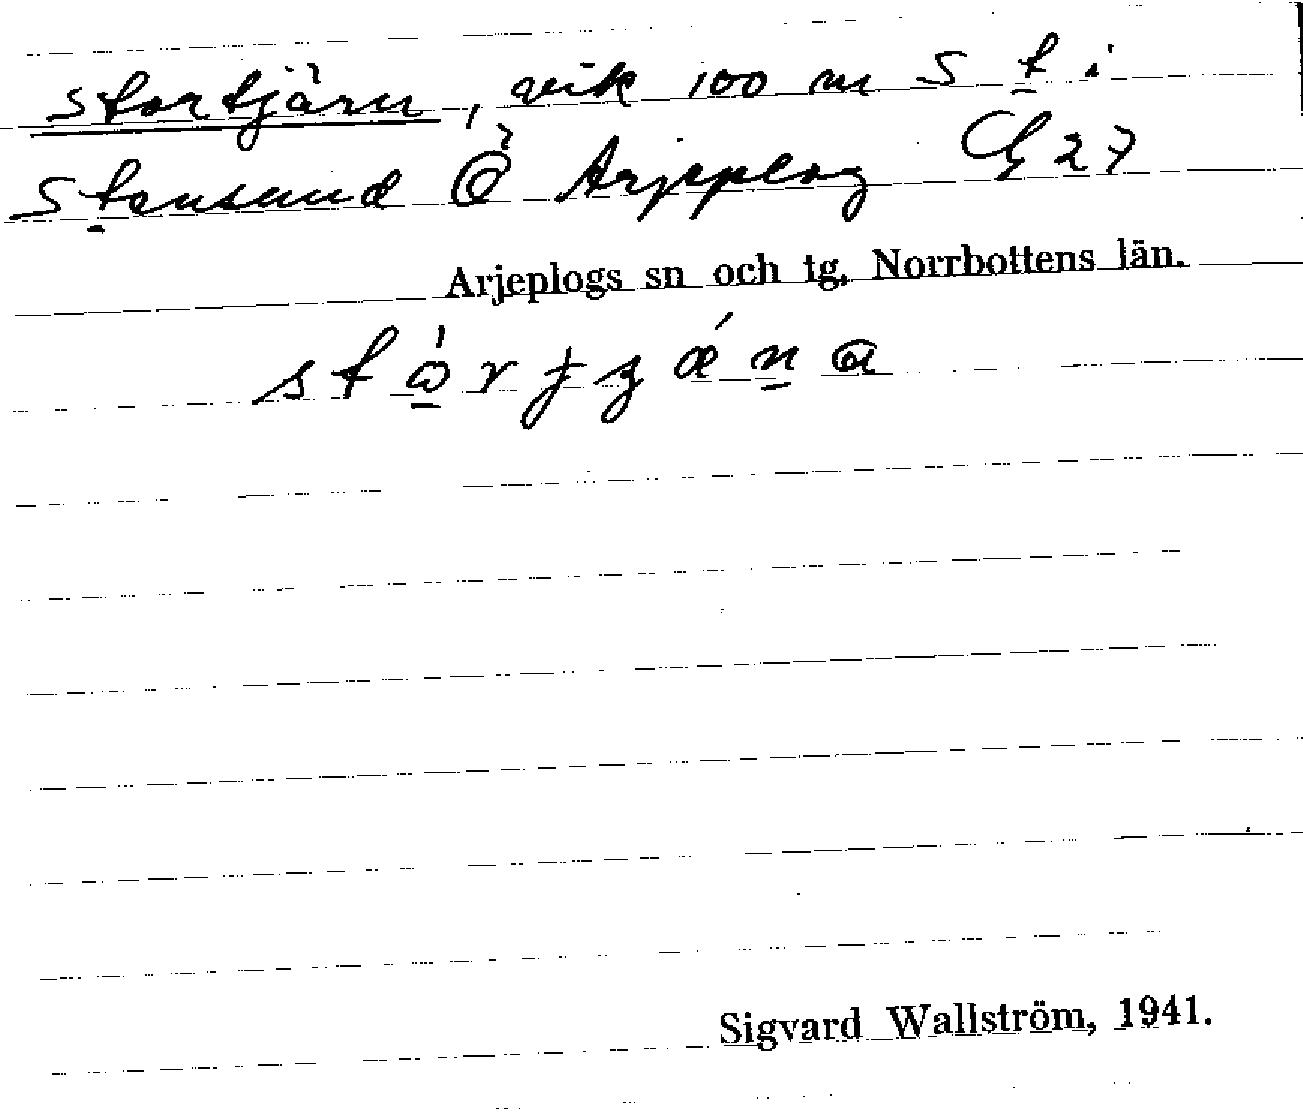 Stortjärn, vik 100 m S t i
Stensund Ö Arjeplog G 27
Arjeplogs sn och tg. Norrbottens län.
Sigvard Wallström, 1941.